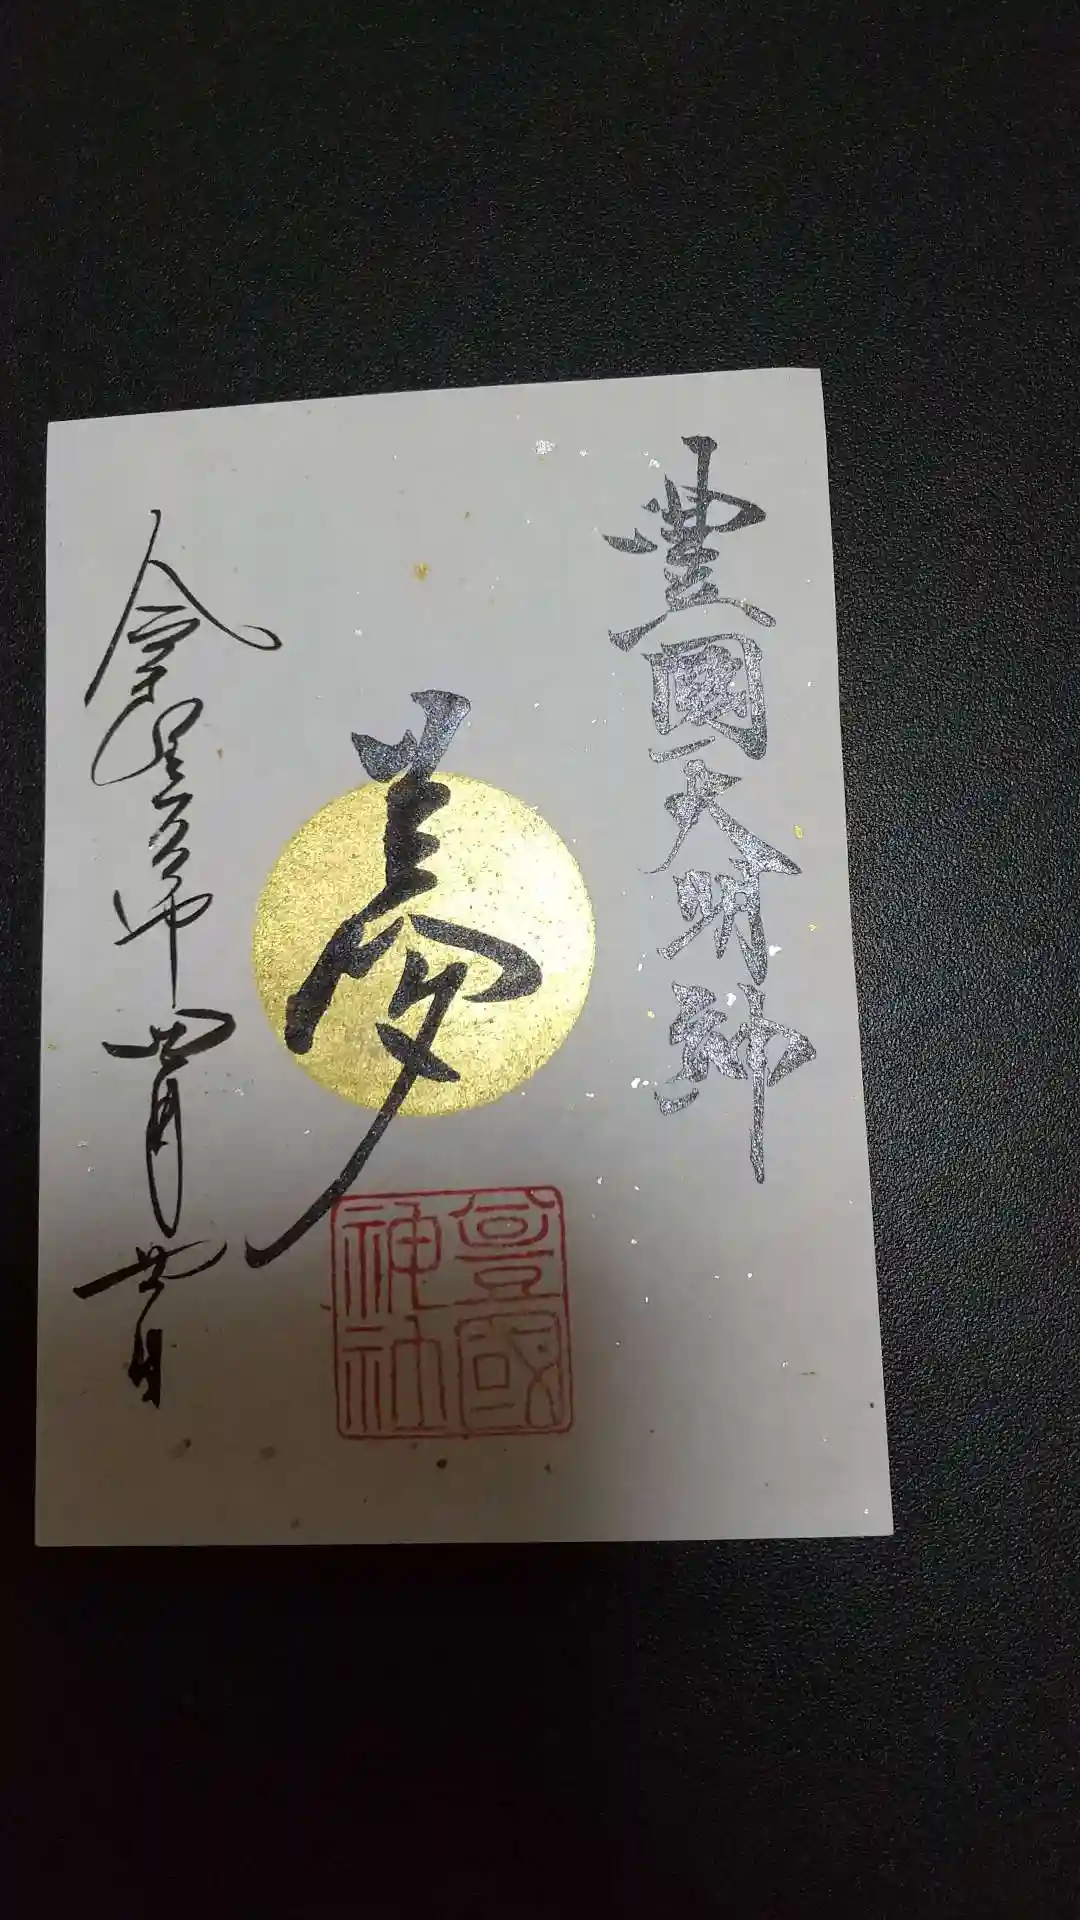 豊國大明神
夢
令和
年
月
日
豊國
神社